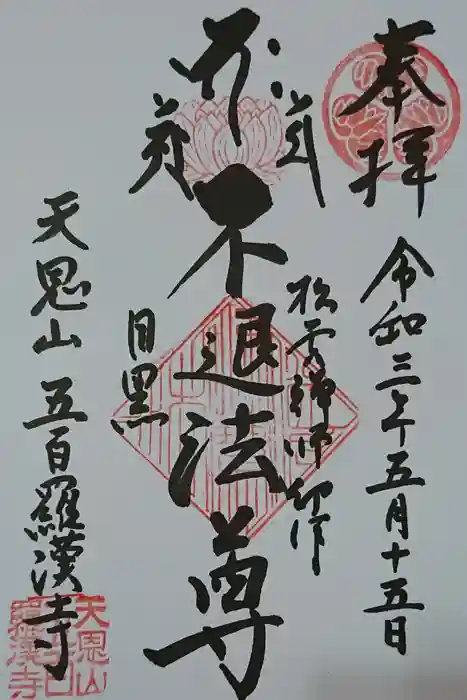 奉拝
令和三年五月十五日
松雲禅師御作
不退法尊
目黒
天恩山 五百羅漢寺
天恩山
五百
羅漢寺